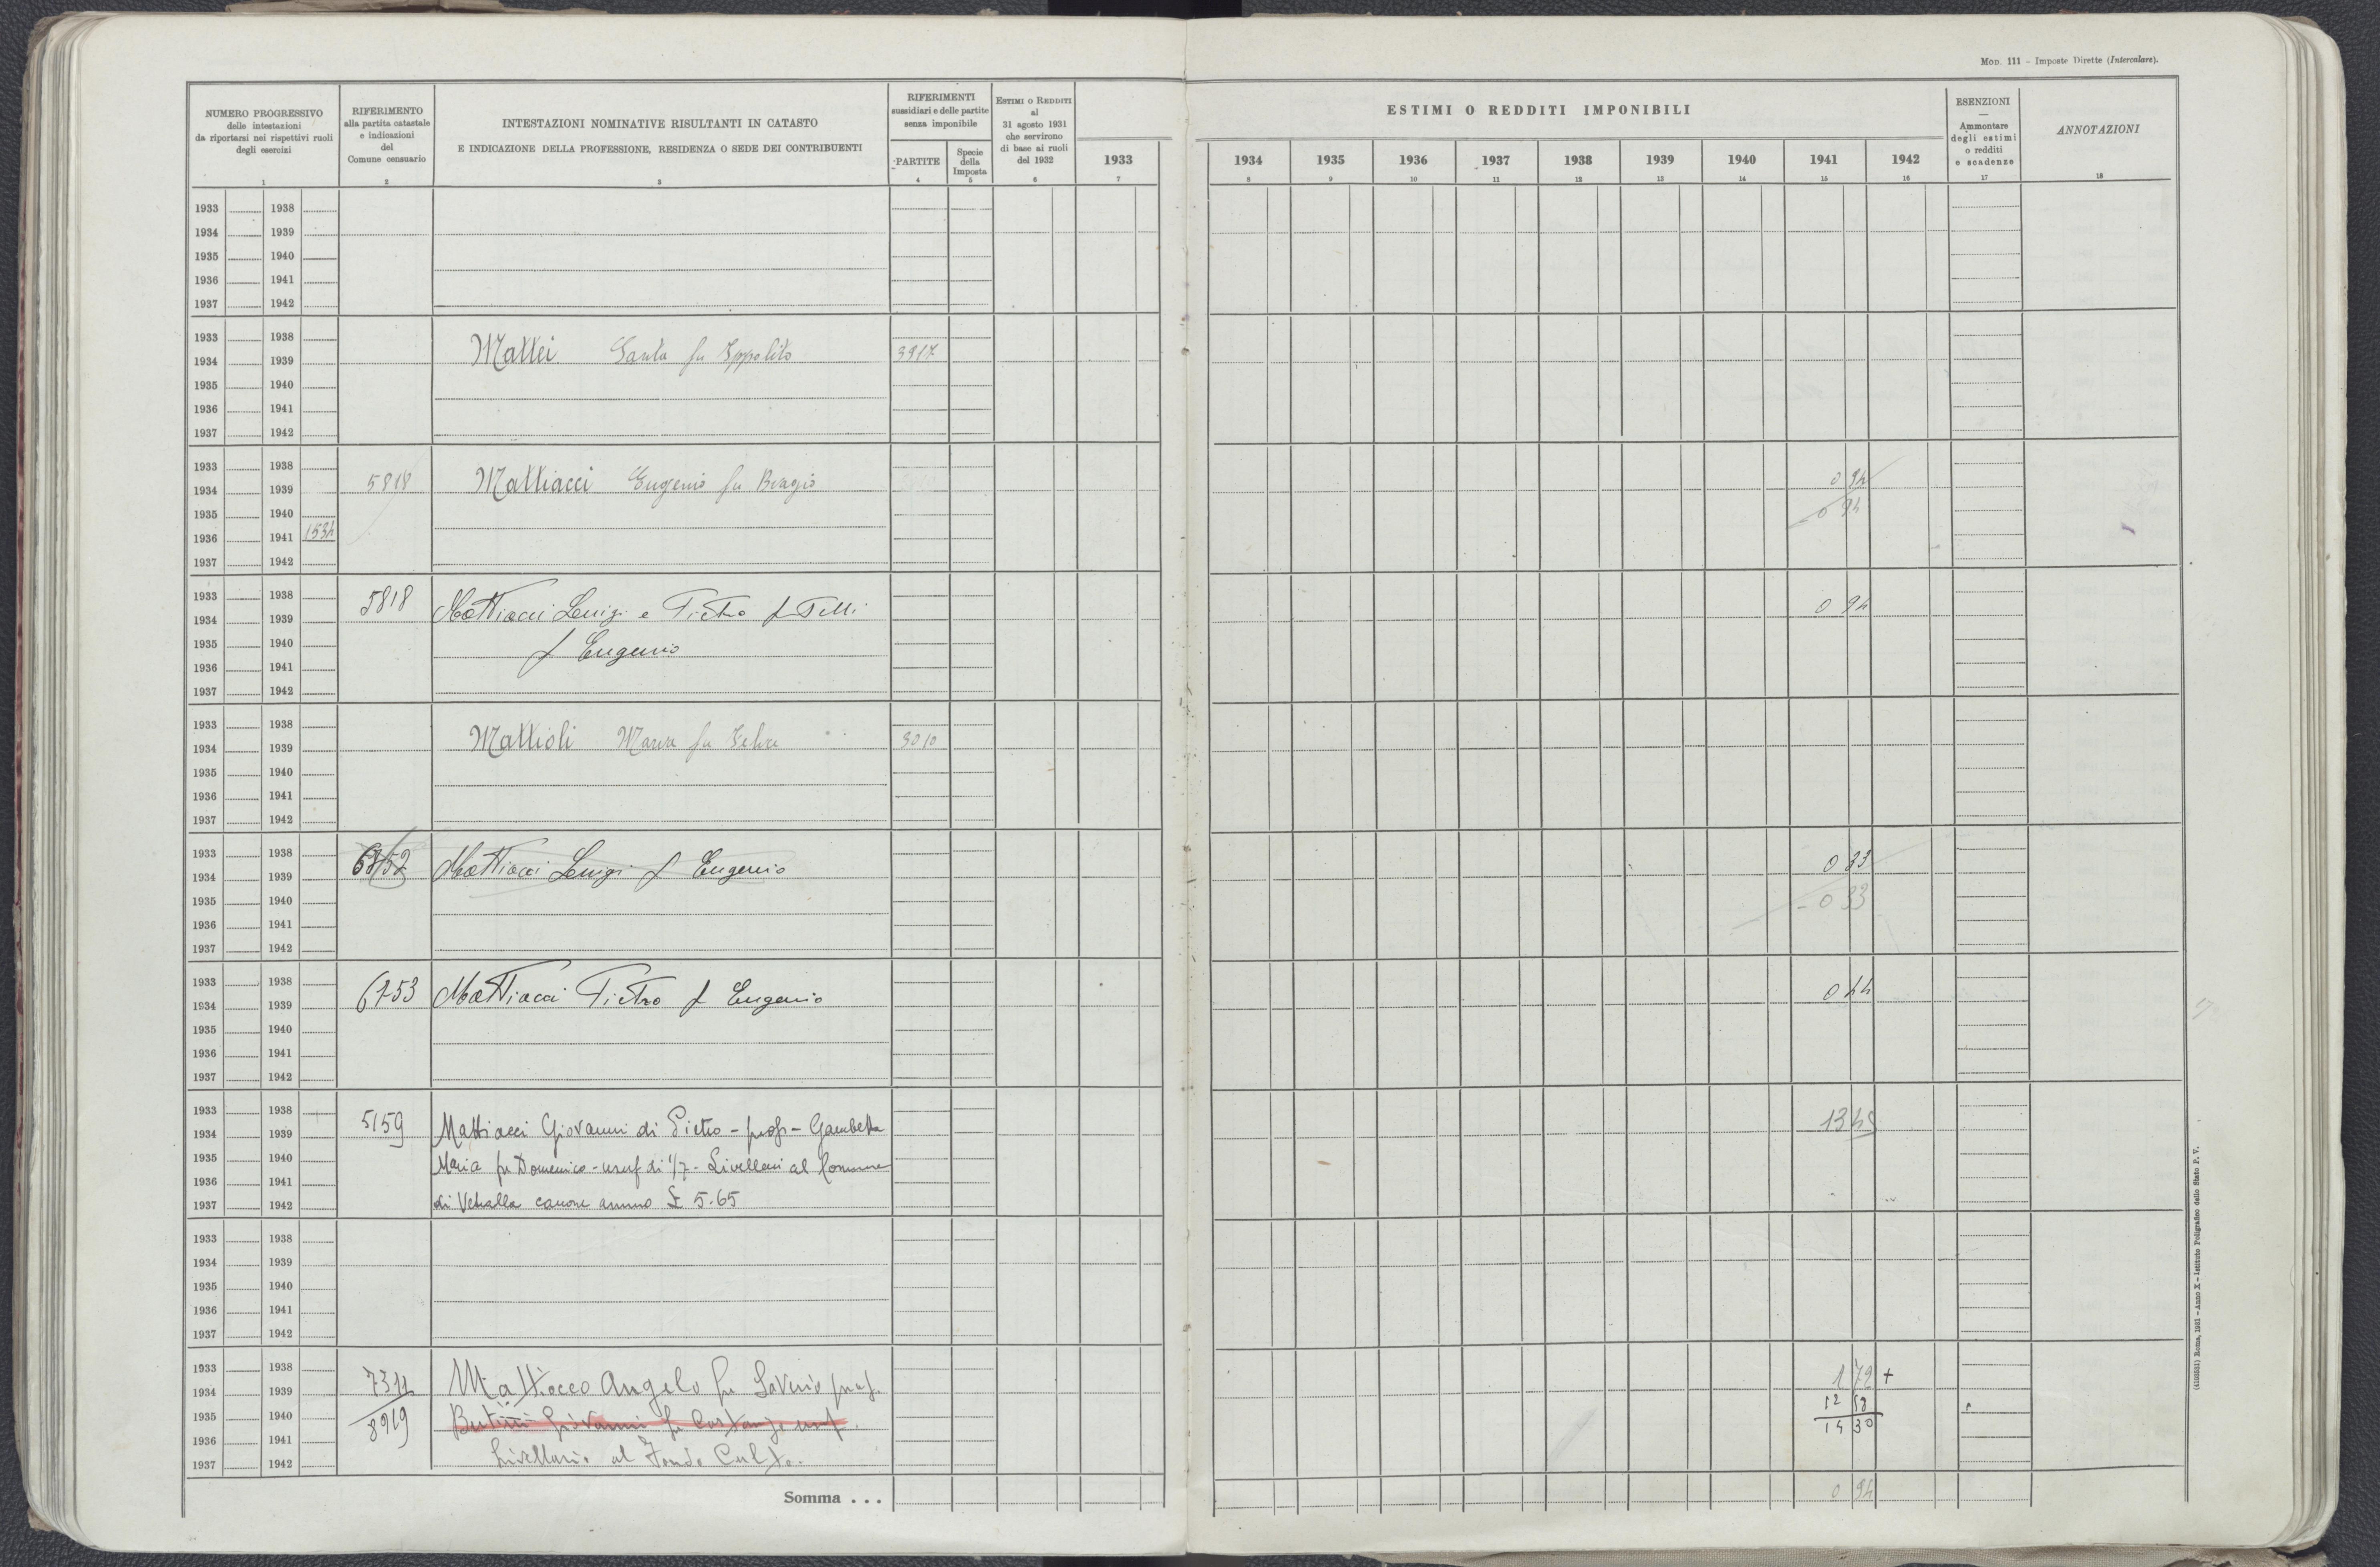 MOD. 111 – Imposte Dirette (Intercalare).
NUMERO PROGRESSIVO
delle intestazioni
da riportarsi nei rispettivi ruoli
degli esercizi
1
RIFERIMENTO
alla partita catastale
e indicazioni
del
Comune censuario
2
INTESTAZIONI NOMINATIVE RISULTANTI IN CATASTO
E INDICAZIONE DELLA PROFESSIONE, RESIDENZA O SEDE DEI CONTRIBUENTI
3
RIFERIMENTI
sussidiari e delle partite
senza imponibile
PARTITE
4
Specie
della
Imposta
5
ESTIMI O REDDITI
al
31 agosto 1931
che servirono
di base ai ruoli
del 1932
6
1933
7
ESTIMI O REDDITI IMPONIBILI
1934 1935 1936 1937 1938 1939 1940 1941 1942
8 9 10 11 12 13 14 15 16
ESENZIONI
—
Ammontare
degli estimi
o redditi
e scadenze
17
ANNOTAZIONI
18
1933 1938
1934 1939
1935 1940
1936 1941
1937 1942
1933 1938
1934 1939 Mattei Santa fu Ippolito 3917
1935 1940
1936 1941
1937 1942
1933 1938
1934 1939 5818 Mattiacci Eugenio fu Biagio 0 94
1935 1940 - 0 94
1936 1941 1534
1937 1942
1933 1938
1934 1939 5818 Mattiacci Luigi e Pietro f.telli 0 94
1935 1940 f Eugenio
1936 1941
1937 1942
1933 1938
1934 1939 Mattioli Maria fu Felice 3010
1935 1940
1936 1941
1937 1942
1933 1938
1934 1939 Mattiacci Luigi f Eugenio 0 33
1935 1940 - 0 33
1936 1941
1937 1942
1933 1938
1934 1939 6753 Mattiacci Pietro f Eugenio 0 44
1935 1940
1936 1941
1937 1942
1933 1938
1934 1939 5159 Mattiacci Giovanni di Pietro - prop - Gambetta 13 45
1935 1940 Maria fu Domenico - usuf di 1/7 - Livellari al Comune
1936 1941
1937 1942 di Vetralla canone annuo £ 5.65
1933 1938
1934 1939
1935 1940
1936 1941
1937 1942
1933 1938
1934 1939 7311 Mattiocco Angelo fu Saverio prop. 1 72 +
1935 1940 8919 Giovanni fu Costanzo usuf. 12 58
1936 1941 14 30
1937 1942 Livellario al Fondo Culto.
Somma . . . 0 94
(4103531) Roma, 1931 – Anno X – Istituto Poligrafico dello Stato P. V.